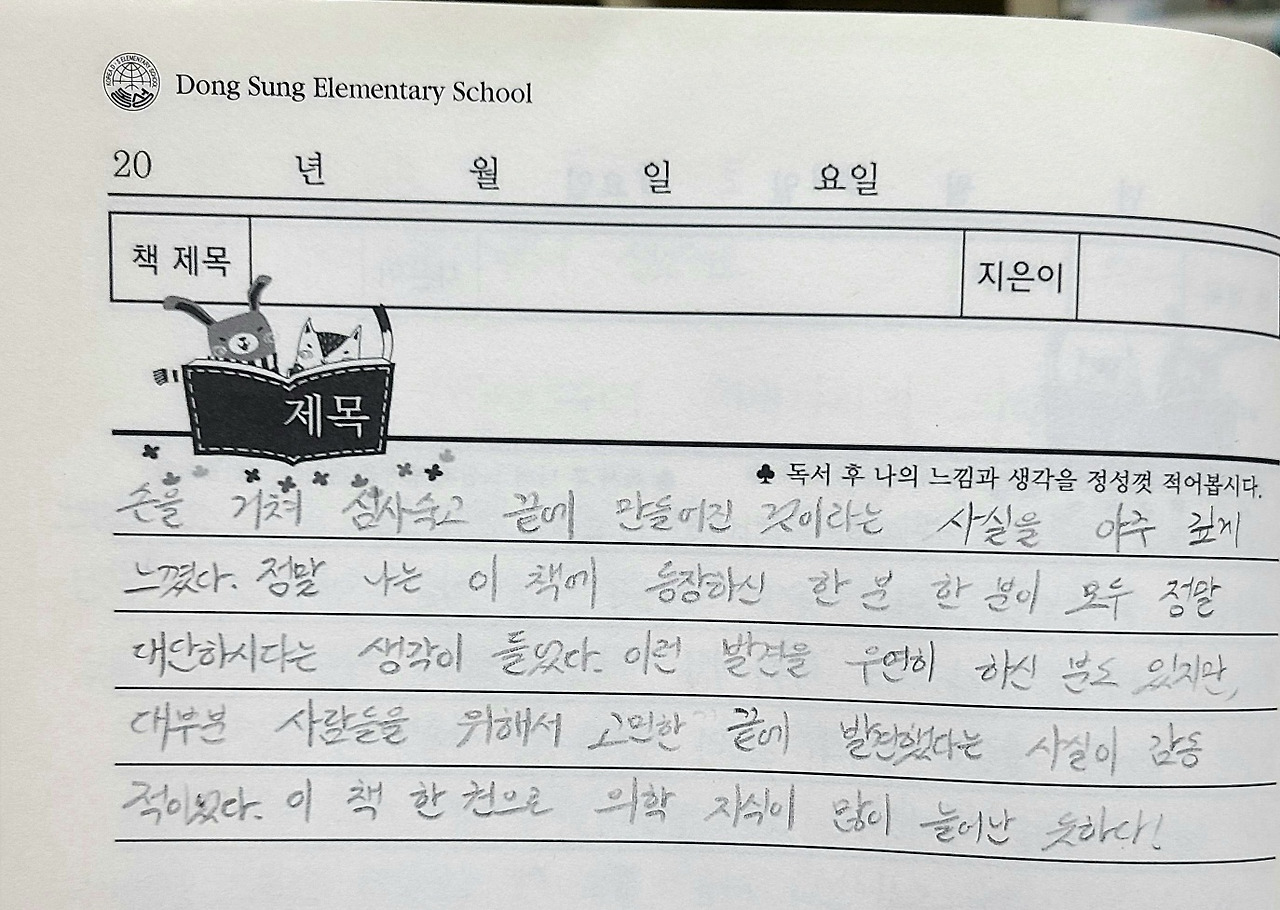 Dong Sung Elementary School
20 년 월 일 요일
책 제목 지은이
제목
♣ 독서 후 나의 느낌과 생각을 정성껏 적어봅시다.
손을 거쳐 심사숙고 끝에 만들어진 것이라는 사실을 아주 깊게
느꼈다. 정말 나는 이 책에 등장하신 한 분 한 분이 모두 정말
대단하시다는 생각이 들었다. 이런 발견을 우연히 하신 분도 있지만,
대부분 사람들을 위해서 고민한 끝에 발견했다는 사실이 감동
적이었다. 이 책 한 권으로 의학 지식이 많이 늘어난 듯하다!